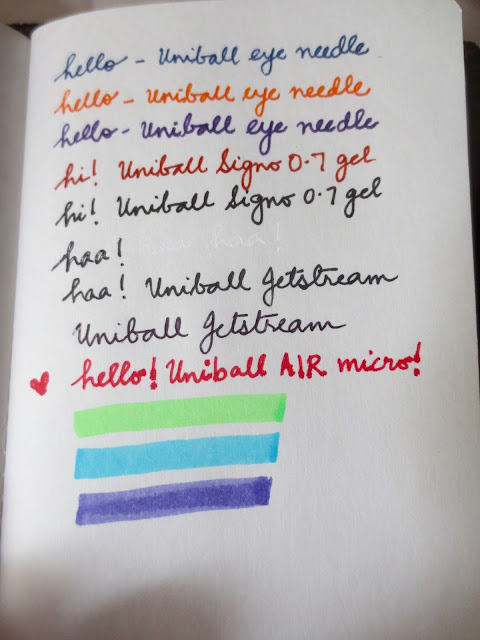 hello - Uniball eye needle
hello - Uniball eye needle
hello - Uniball eye needle
hi! Uniball Signo 0.7 gel
hi! Uniball Signo 0.7 gel
haa! haa!
haa! Uniball Jetstream
Uniball Jetstream
hello! Uniball AIR micro!